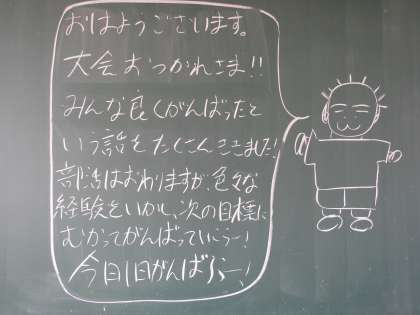 おはようございます。
大会おつかれさま!!
みんな良くがんばったと
いう話をたくさんききました!
部活はおわりますが、色々な
経験をいかし、次の目標に
むかってがんばっていこう!
今日1日がんばろう!